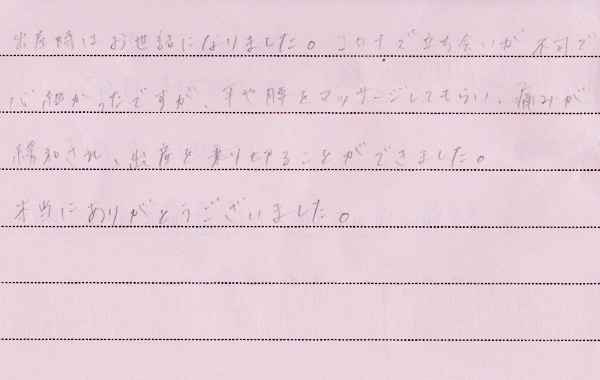 出産時はお世話になりました。コロナで立ち会いが不可で
心細かったですが、手や腰をマッサージしてもらい、痛みが
緩和され、出産を乗り切ることができました。
本当にありがとうございました。